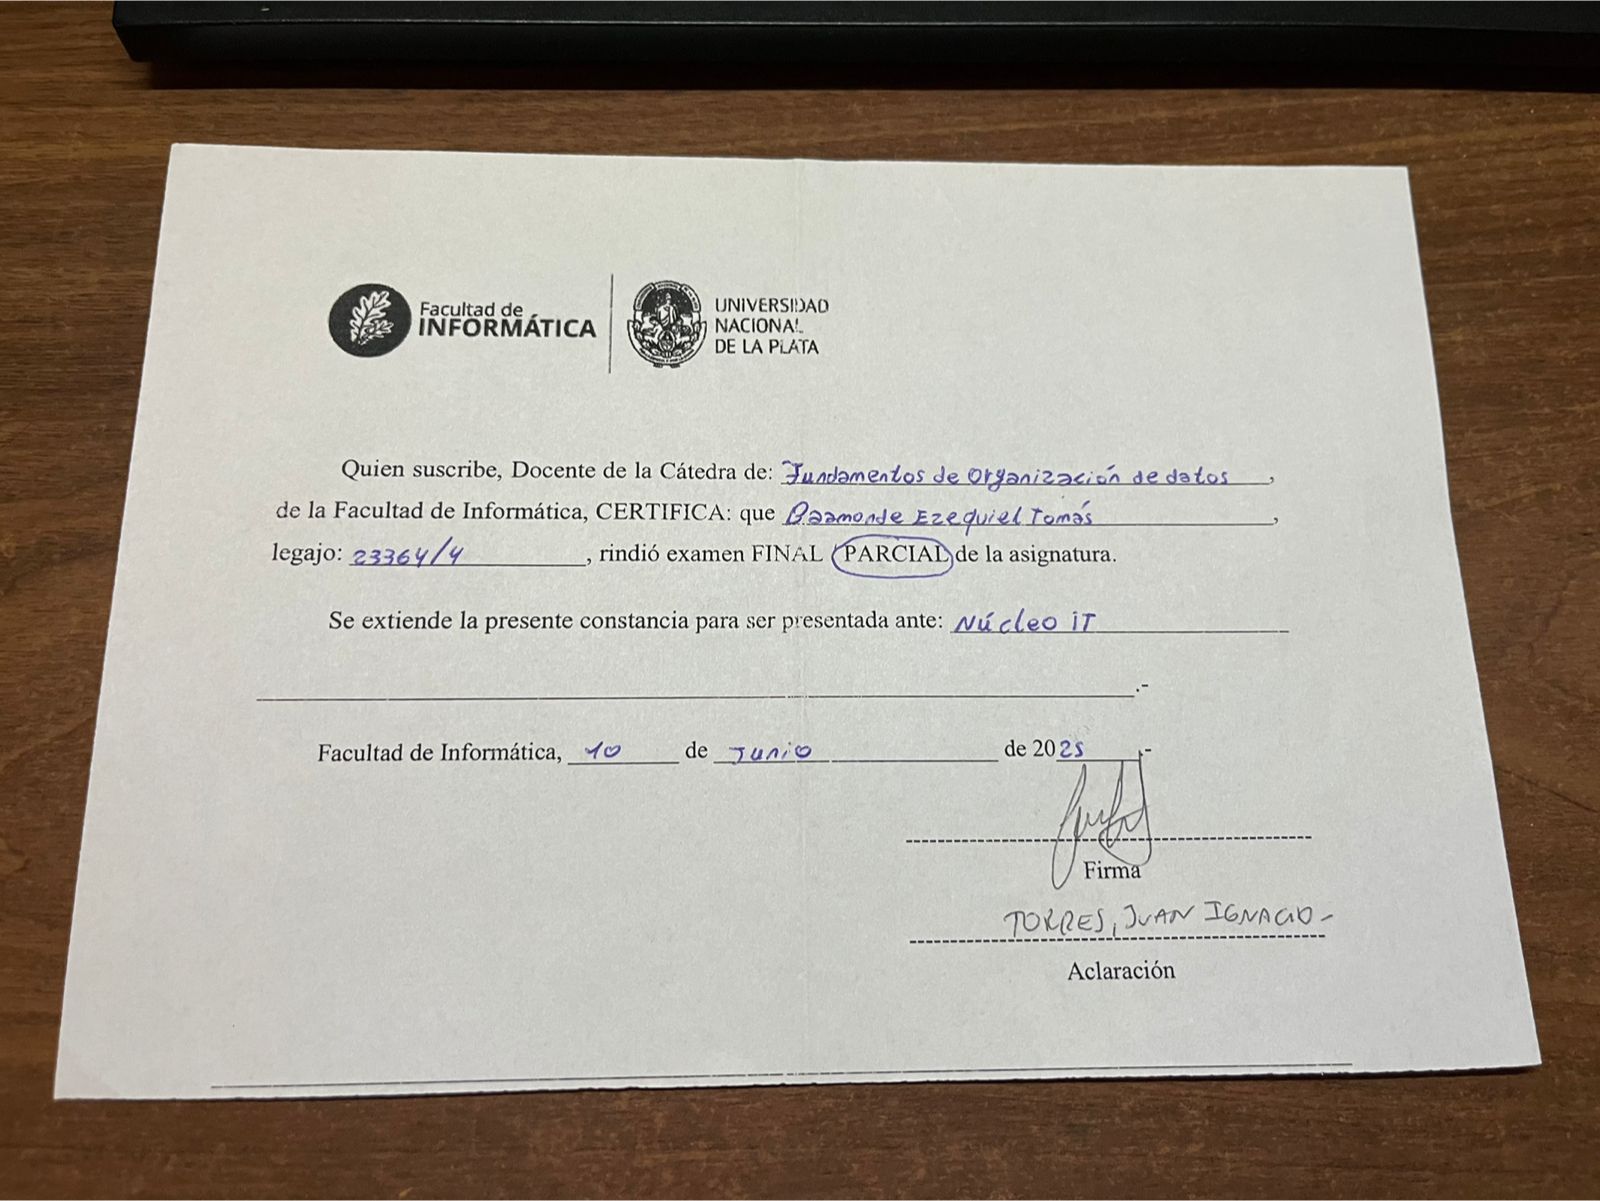 Facultad de
INFORMÁTICA
UNIVERSIDAD
NACIONAL
DE LA PLATA
Quien suscribe, Docente de la Cátedra de: Fundamentos de Organización de datos,
de la Facultad de Informática, CERTIFICA: que Baamonde Ezequiel Tomás,
legajo: 23364/4, rindió examen FINAL PARCIAL de la asignatura.
Se extiende la presente constancia para ser presentada ante: Núcleo iT
.-
Facultad de Informática, 10 de Junio de 2025.-
Firma
TORRES, JUAN IGNACIO-
Aclaración